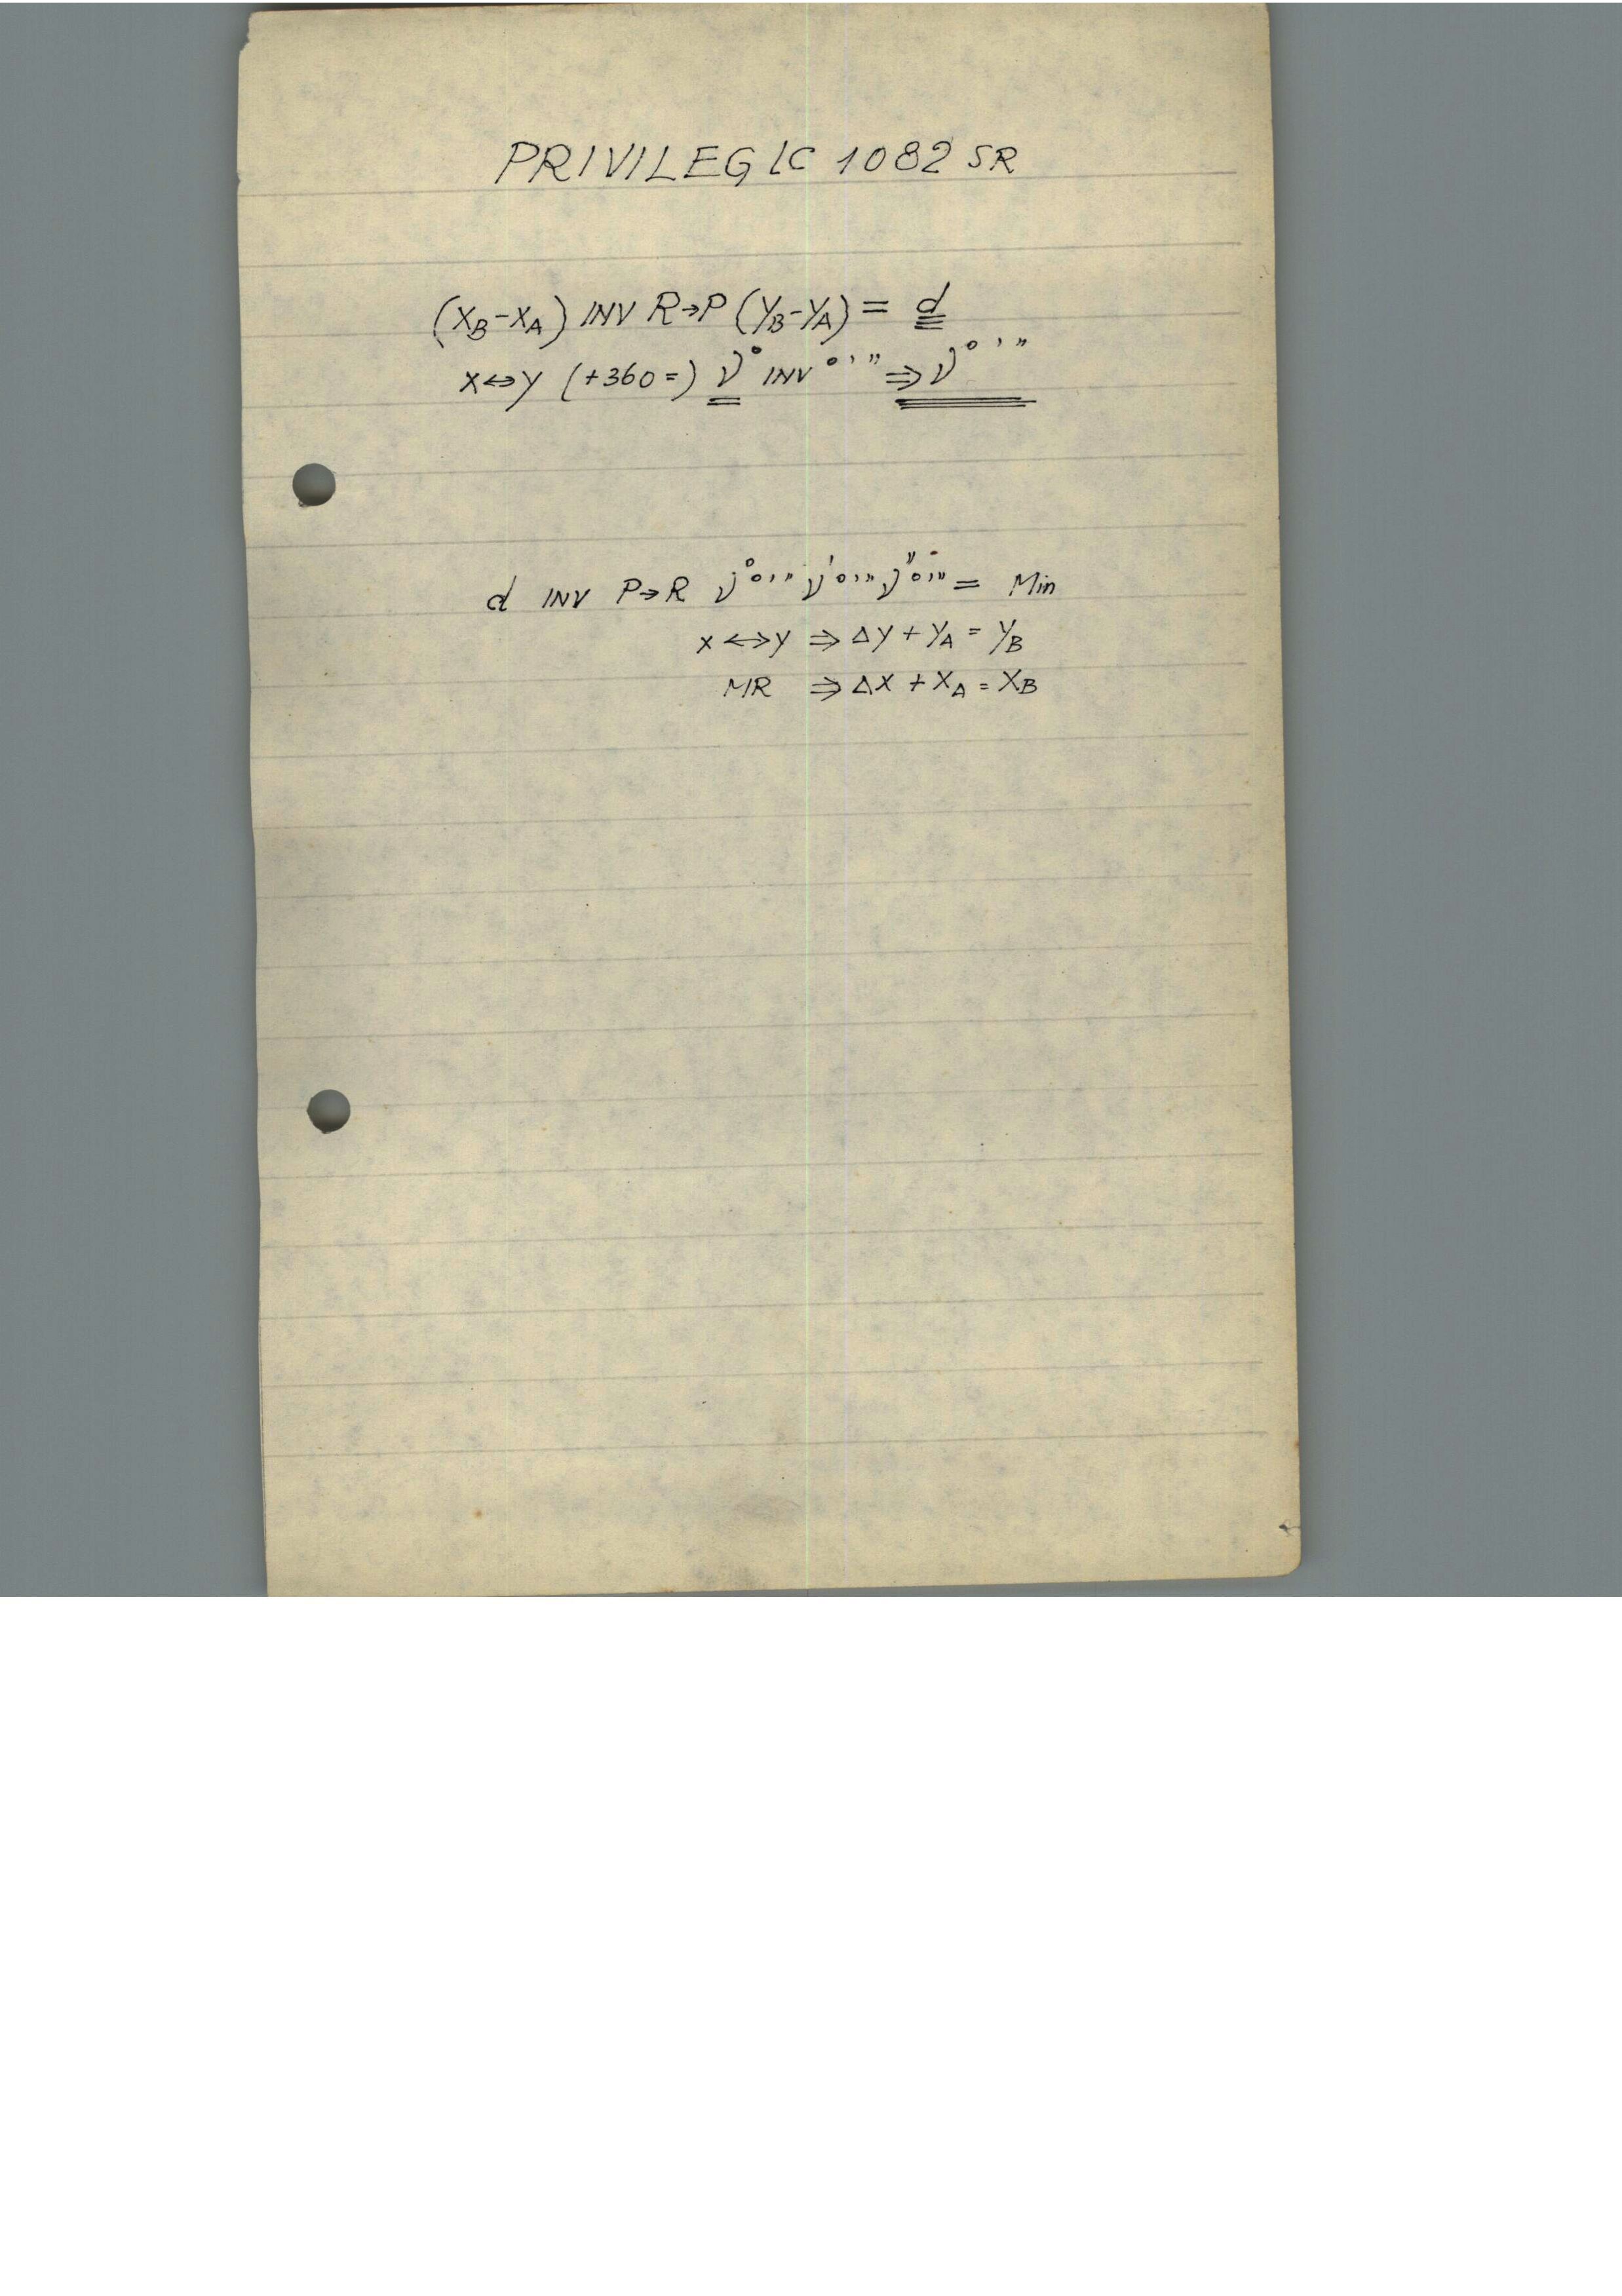 PRIVILEG LC 1082 SR
(XB-XA) INV R→P (YB-YA) = d
x↔y (+360=) ν° INV °'" ⇒ ν°'"
d INV P→R ν° °'" ν' °'" ν" °'" = Min
x↔y ⇒ Δy + YA = YB
MR ⇒ Δx + XA = XB